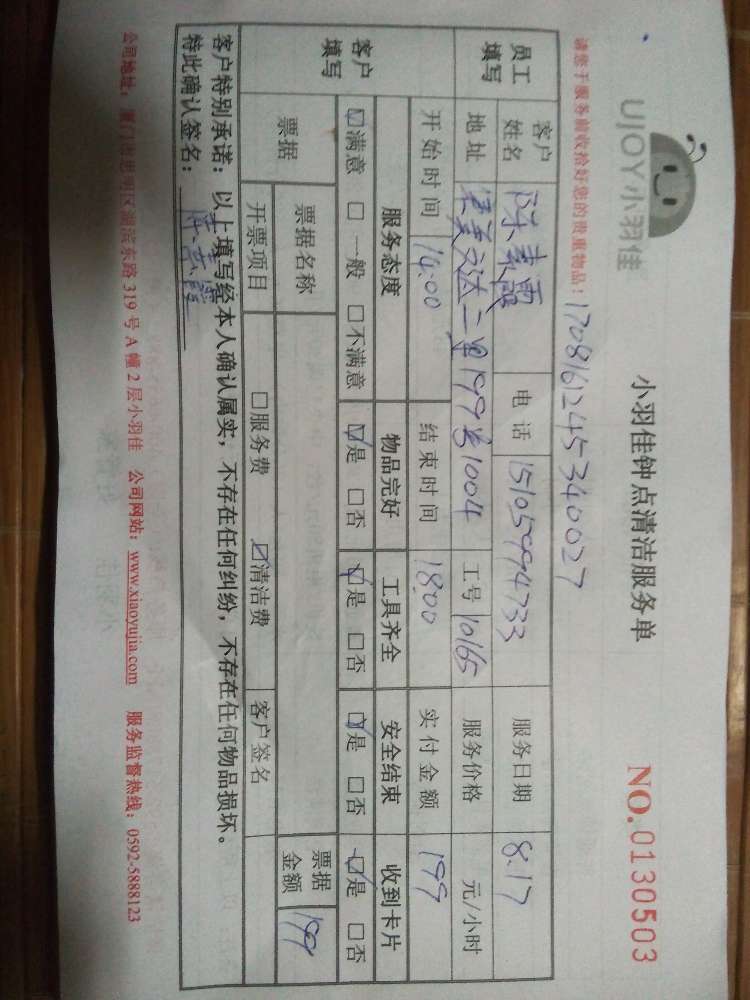 UJOY小羽佳
小羽佳钟点清洁服务单
NO.0130503
请您于服务前收拾好您的贵重物品！
1708161245340027
员工填写
客户姓名 陈素霞 电话 15105994733 服务日期 8.17
地址 199号1004 工号 10165 服务价格 元/小时
开始时间 14:00 结束时间 18:00 实付金额 199
客户填写
服务态度 物品完好 工具齐全 安全结束 收到卡片
☑满意 □一般 □不满意 ☑是 □否 ☑是 □否 ☑是 □否 ☑是 □否
票据 票据名称 票据金额 199
开票项目 □服务费 ☑清洁费 客户签名
客户特别承诺：以上填写经本人确认属实，不存在任何纠纷，不存在任何物品损坏。
特此确认签名：陈素霞
公司地址：厦门市思明区湖滨东路319号A幢2层小羽佳 公司网站：www.xiaoyujia.com 服务监督热线：0592-5888123